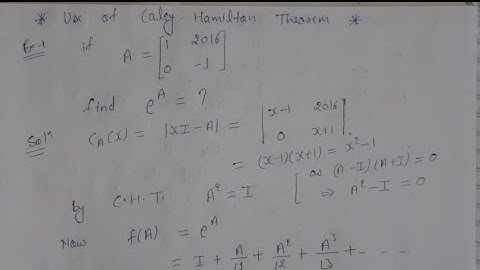 * Use of Caley-Hamilton Theorem *
Ex-1 if A = [1 2016
0 -1]
find e^A = ?
Sol^n C_A(x) = |xI-A| = |x-1 2016
0 x+1|.
= (x-1)(x+1) = x²-1
by C.H.T. A² = I [ as (A-I)(A+I) = 0
⇒ A²-I = 0
Now f(A) = e^A
= I + A/⌊1 + A²/⌊2 + A³/⌊3 + - - -